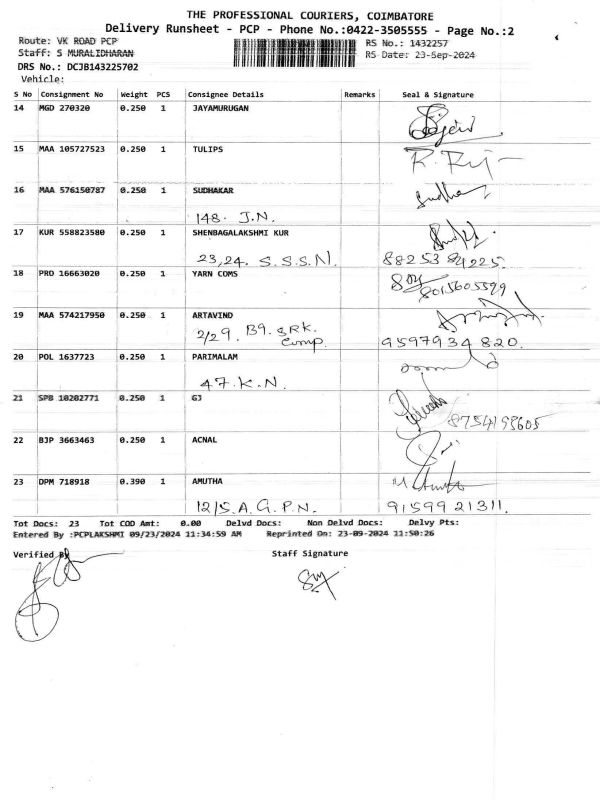 THE PROFESSIONAL COURIERS, COIMBATORE
Delivery Runsheet - PCP - Phone No.:0422-3505555 - Page No.:2
Route: VK ROAD PCP RS No.: 1432257
Staff: S MURALIDHARAN RS Date: 23-Sep-2024
DRS No.: DCJB143225702
Vehicle:
S No Consignment No Weight PCS Consignee Details Remarks Seal & Signature
14 MGD 270320 0.250 1 JAYAMURUGAN
15 MAA 105727523 0.250 1 TULIPS
16 MAA 576150787 0.250 1 SUDHAKAR
148. J.N.
17 KUR 558823580 0.250 1 SHENBAGALAKSHMI KUR
23,24. S.S.S.N. 88253 84225.
18 PRO 16663020 0.250 1 YARN COMS
8015605599
19 MAA 574217950 0.250 1 ARTAVIND
2/29. B9. SRK. Comp. 9597934 820.
20 POL 1637723 0.250 1 PARIMALAM
47. K.N.
21 SPB 10202771 0.250 1 GJ
8754198605
22 BJP 3663463 0.250 1 ACNAL
23 DPM 718918 0.390 1 AMUTHA
12/S.A.G.P.N. 91599 21311.
Tot Docs: 23 Tot COD Amt: 0.00 Delvd Docs: Non Delvd Docs: Delvy Pts:
Entered By :PCPLAKSHMI 09/23/2024 11:34:59 AM Reprinted On: 23-09-2024 11:50:26
Verified By Staff Signature